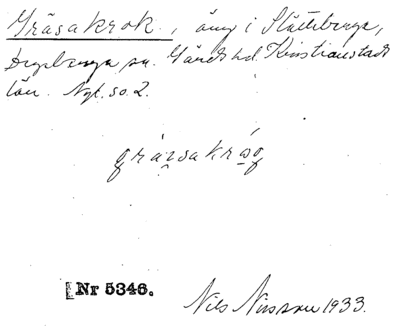 Gräsakrok, äng i Slättebergs,
Degeberga sn. Gärds hd. Kristianstads
län. Nyt. so. 2.
gräzsakråg
[Nr 5346.
Nils Nilsson 1933.